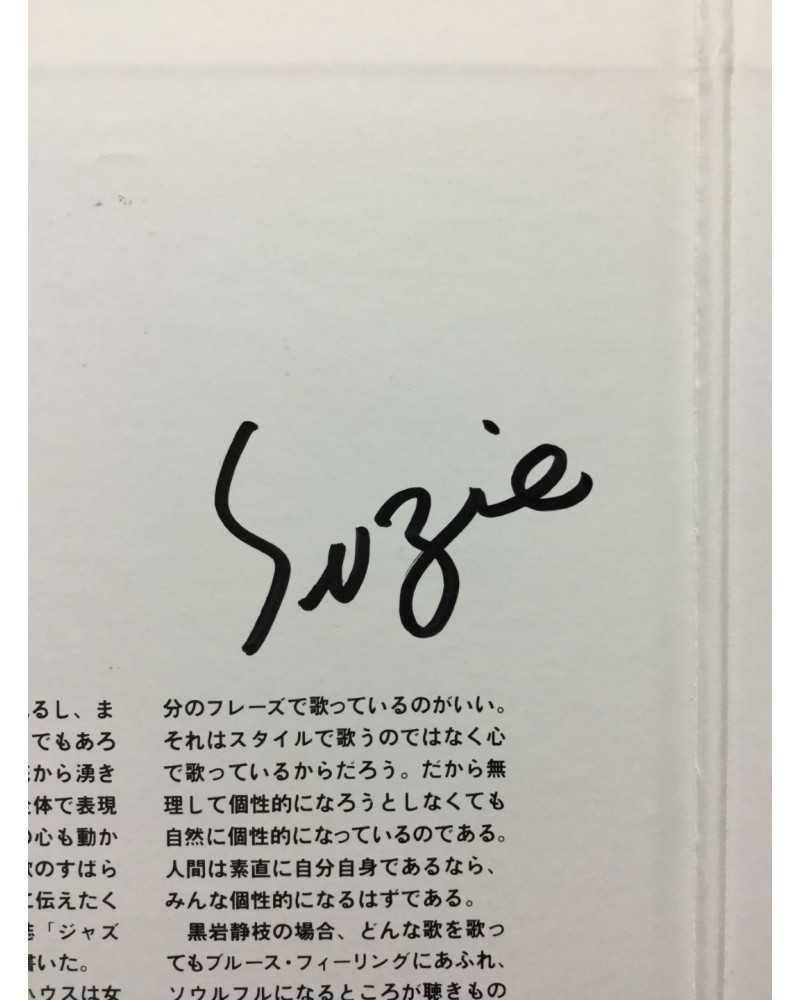 Suzie
るし、ま
でもあろ
から湧き
体で表現
心も動か
のすばら
に伝えたく
「ジャズ
書いた。
ハウスは女
分のフレーズで歌っているのがいい。
それはスタイルで歌うのではなく心
で歌っているからだろう。だから無
理して個性的になろうとしなくても
自然に個性的になっているのである。
人間は素直に自分自身であるなら、
みんな個性的になるはずである。
黒岩静枝の場合、どんな歌を歌っ
てもブルース・フィーリングにあふれ、
ソウルフルになるところが聴きもの